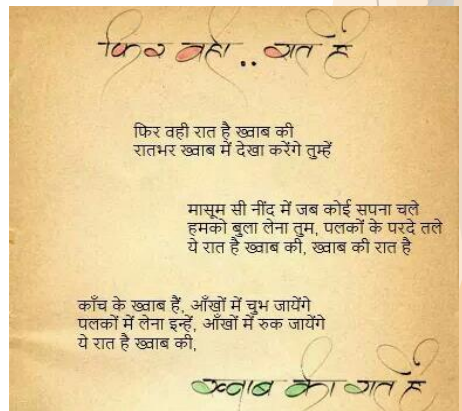 फिर वही.. रात है
फिर वही रात है ख्वाब की
रातभर ख्वाब में देखा करेंगे तुम्हें
मासूम सी नींद में जब कोई सपना चले
हमको बुला लेना तुम, पलकों के परदे तले
ये रात है ख्वाब की, ख्वाब की रात है
काँच के ख्वाब हैं, आँखों में चुभ जायेंगे
पलकों में लेना इन्हें, आँखों में रुक जायेंगे
ये रात है ख्वाब की,
ख्वाब की रात है